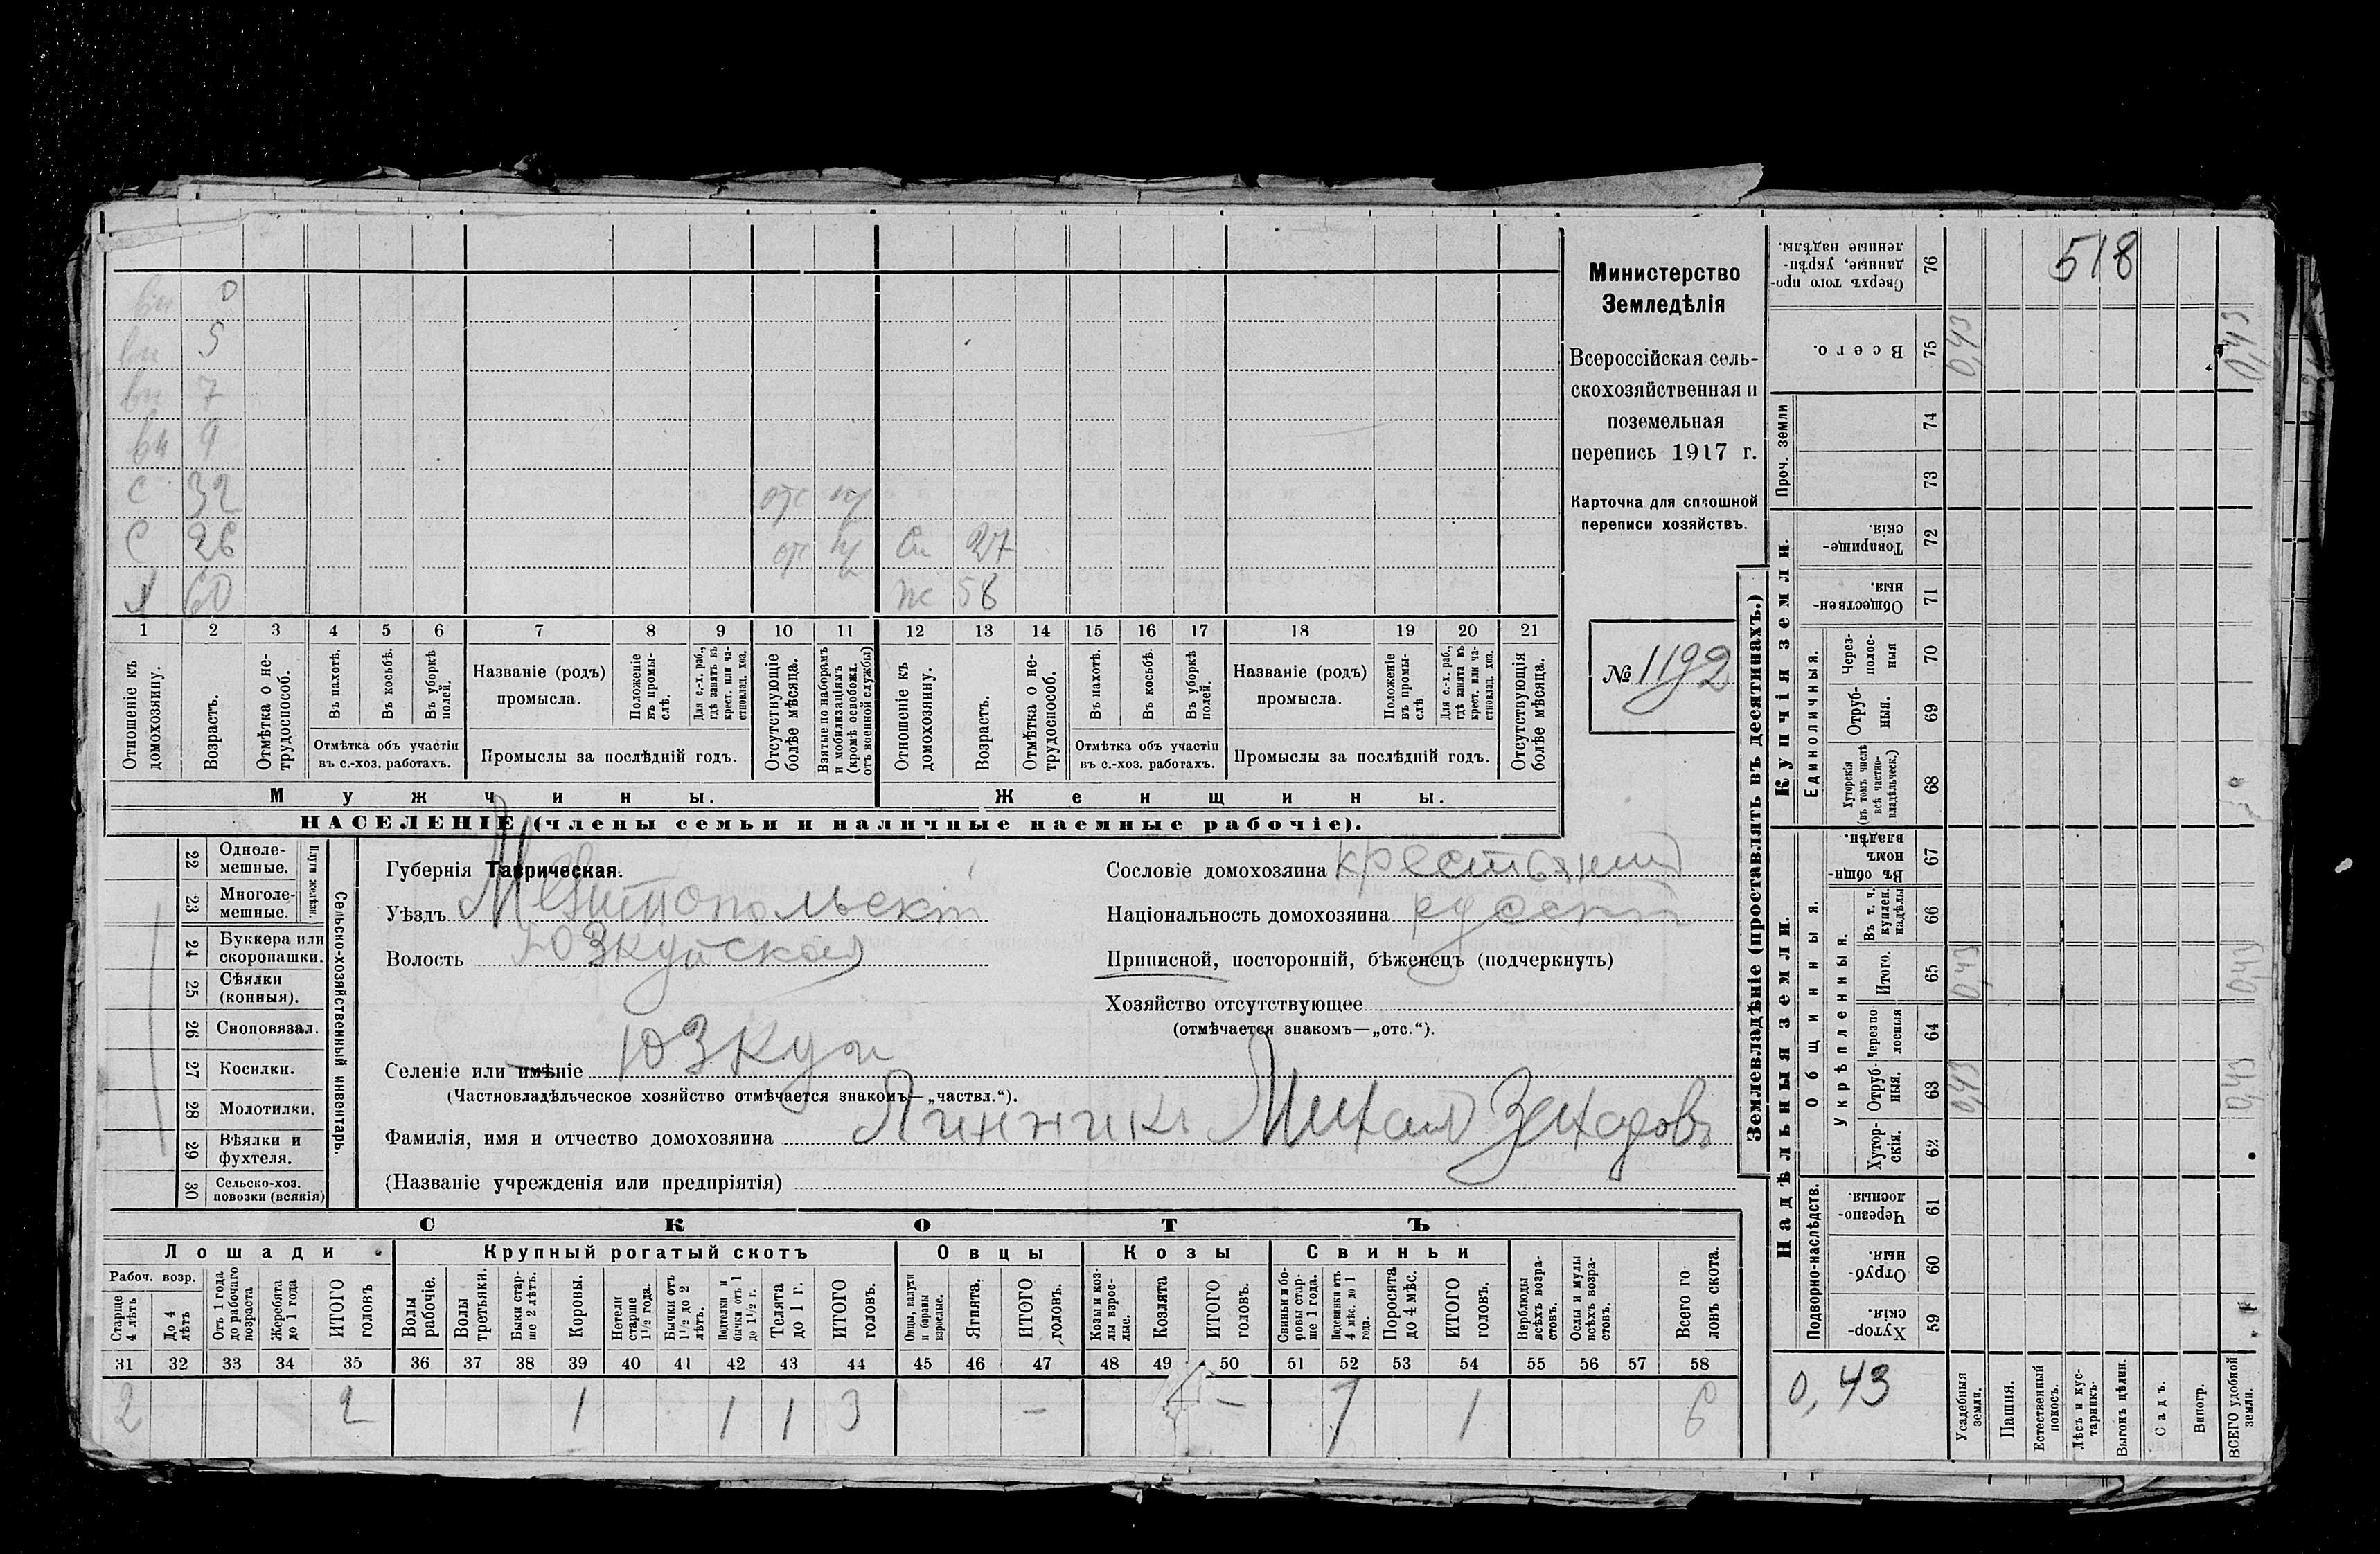 518
Министерство
Земледѣлія
Всероссійская сель-
скохозяйственная и
поземельная
перепись 1917 г.
Карточка для сплошной
переписи хозяйствъ.
№ 1192
вн 0
вн 5
вн 7
вн 9
С 32 отс
С 26 отс 27
60 ж 58
1 2 3 4 5 6 7 8 9 10 11 12 13 14 15 16 17 18 19 20 21
Отношеніе къ домохозяину.
Возрастъ.
Отмѣтка о не-трудоспособ.
Въ пахотѣ.
Въ косьбѣ.
Въ уборкѣ полей.
Отмѣтка объ участіи въ с.-хоз. работахъ.
Названіе (родъ) промысла.
Положеніе въ промы-слѣ.
Для с.-х. раб., гдѣ занятъ въ крест. или ча-стновлад. хоз.
Промыслы за послѣдній годъ.
Отсутствующіе болѣе мѣсяца.
Взятые по наборамъ и мобилизаціямъ (кромѣ освобожд. отъ военной службы)
Отношеніе къ домохозяину.
Возрастъ.
Отмѣтка о не-трудоспособ.
Въ пахотѣ.
Въ косьбѣ.
Въ уборкѣ полей.
Отмѣтка объ участіи въ с.-хоз. работахъ.
Названіе (родъ) промысла.
Положеніе въ промы-слѣ
Для с.-х. раб., гдѣ занята въ крест. или ча-стновлад. хоз.
Промыслы за послѣдній годъ.
Отсутствующія болѣе мѣсяца.
Мужчины. Женщины.
НАСЕЛЕНІЕ (члены семьи и наличные наемные рабочіе).
22 Одноле-мешные.
23 Многоле-мешные.
Плуги желѣзн.
24 Буккера или скоропашки.
25 Сѣялки (конныя).
26 Сноповязал.
27 Косилки.
28 Молотилки.
29 Вѣялки и фухтеля.
30 Сельско-хоз. повозки (всякія)
Сельско-хозяйственный инвентарь.
Губернія Таврическая.
Уѣздъ Мелитопольскій
Волость Юзкуйская
Селеніе или имѣніе Юзкуи
(Частновладѣльческое хозяйство отмѣчается знакомъ—„частвл.“).
Сословіе домохозяина крестьянин
Національность домохозяина русскій
Приписной, посторонній, бѣженецъ (подчеркнуть)
Хозяйство отсутствующее
(отмѣчается знакомъ—„отс.“).
Фамилія, имя и отчество домохозяина Линникъ Михаил Захаровъ
(Названіе учрежденія или предпріятія)
СКОТЪ
Лошади Крупный рогатый скотъ Овцы Козы Свиньи
Рабоч. возр.
Старще 4 лѣтъ
До 4 лѣтъ
Отъ 1 года до рабочаго возраста
Жеребята до 1 года
ИТОГО головъ
Волы рабочіе.
Волы третьяки.
Быки стар-ше 2 лѣтъ.
Коровы.
Нетели старше 1 1/2 года.
Бычки отъ 1 1/2 до 2 лѣтъ.
Подтелки и бычки отъ 1 до 1 1/2 г.
Телята до 1 г.
ИТОГО головъ.
Овцы, валухи и бараны взрослые.
Ягнята.
ИТОГО головъ.
Козы и коз-лы взрос-лые.
Козлята
ИТОГО головъ.
Свиньи и бо-ровы стар-ше 1 года.
Подсвинки отъ 4 мѣс. до 1 года.
Поросята до 4 мѣс.
ИТОГО головъ.
Верблюды всѣхъ возра-стовъ.
Ослы и мулы всѣхъ возра-стовъ.
Всего го-ловъ скота.
31 32 33 34 35 36 37 38 39 40 41 42 43 44 45 46 47 48 49 50 51 52 53 54 55 56 57 58
2 2 1 1 1 3 — — 1 1 6
Землевладѣніе (проставлять въ десятинахъ.)
Надѣльныя земли. Купчія земли. Проч. земли
Подворно-наслѣдств.
Общинныя.
Укрѣпленныя.
Единоличныя.
Хутор-скія. 59
Отруб-ныя. 60
Черезпо-лосныя. 61
Хутор-скія. 62
Отруб-ныя. 63
Черезпо-лосныя 64
Итого. 65
Въ т. ч. куплен. надѣлы 66
Въ общи-номъ владѣн. 67
Хуторскія (въ томъ числѣ всѣ частно-владѣльческ.) 68
Отруб-ныя. 69
Через-полос-ныя 70
Обществен-ныя 71
Товарище-скія. 72
73
74
Всего. 75
Сверхъ того про-данные, укрѣп-ленные надѣлы. 76
0,43 0,43
0,43 0,43
0,43 0,43
0,43
Усадебныя земли.
Пашня.
Естественный покосъ.
Лѣсъ и кус-тарникъ.
Выгонъ цѣлин.
Садъ.
Виногр.
ВСЕГО удобной земли.